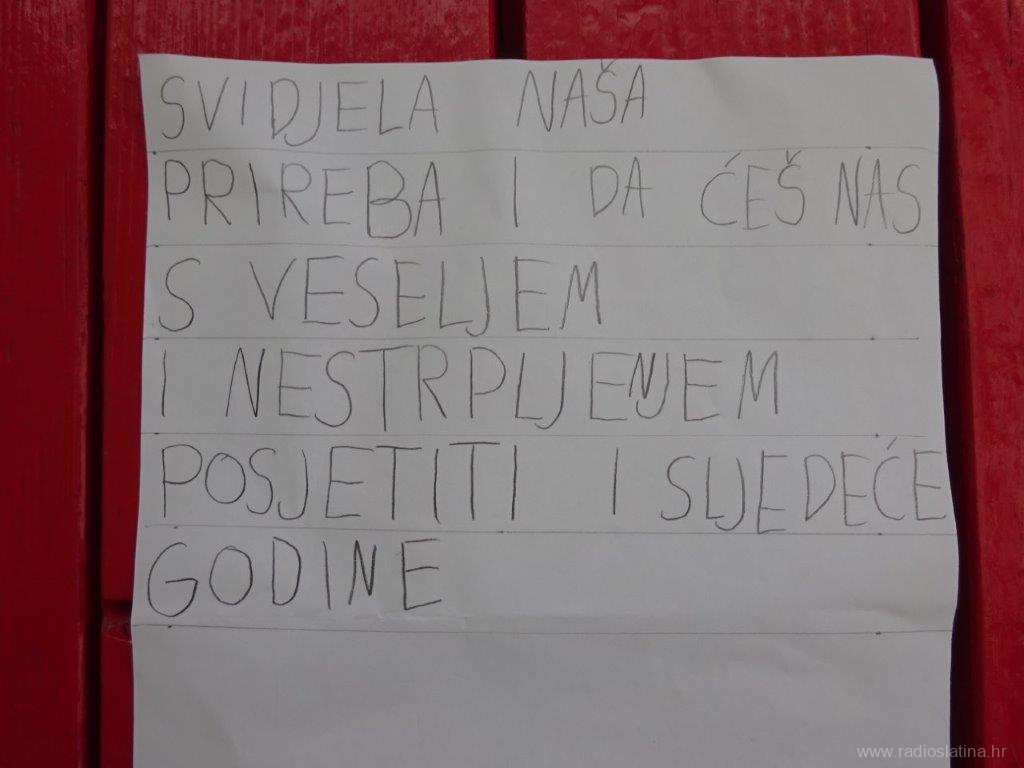 SVIDJELA NAŠA
PRIREBA I DA ĆEŠ NAS
S VESELJEM
I NESTRPLJENJEM
POSJETITI I SLJEDEĆE
GODINE
www.radioslatina.hr